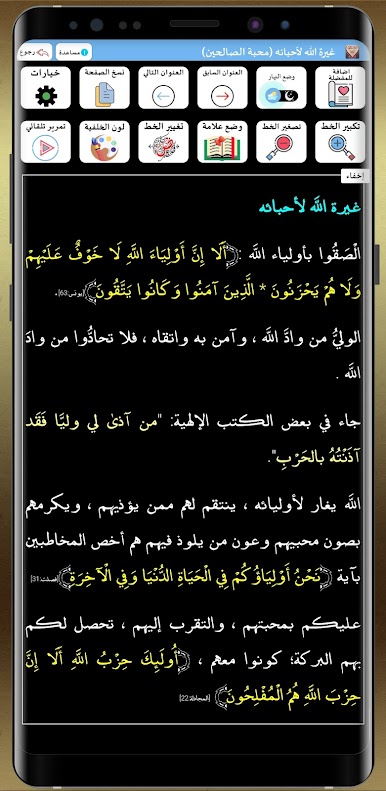 غيرة الله لأحبائه (محبة الصالحين)
مساعدة
رجوع
اضافة للمفضلة
وضع النهار
العنوان السابق
العنوان التالي
نسخ الصفحة
خيارات
تكبير الخط
تصغير الخط
وضع علامة
تغيير الخط
لون الخلفية
تمرير تلقائي
إخفاء
غيرة اللَّه لأحبائه
الْصَقُوا بأولياء اللَّه : ﴿أَلَا إِنَّ أَوْلِيَاءَ اللَّهِ لَا خَوْفٌ عَلَيْهِمْ
وَلَا هُمْ يَحْزَنُونَ * الَّذِينَ آمَنُوا وَكَانُوا يَتَّقُونَ﴾ [يونس:63].
الوليُّ من وادَّ اللَّه ، وآمن به واتقاه ، فلا تحادُّوا من وادَّ
اللَّه .
جاء في بعض الكتب الإلهية: "من آذىٰ لي وليًّا فَقَد
آذَنْتُهُ بالحَرْبِ".
اللَّه يغار لأوليائه ، ينتقم لهم ممن يؤذيهم ، ويكرمهم
بصون محبيهم وعون من يلوذ فيهم هم أخص المخاطبين
بآية ﴿نَحْنُ أَوْلِيَاؤُكُمْ فِي الْحَيَاةِ الدُّنْيَا وَفِي الْآخِرَةِ﴾ [فصلت:31]
عليكم بمحبتهم ، والتقرب إليهم ، تحصل لكم
بهم البركة؛ كونوا معهم ، ﴿أُولَٰئِكَ حِزْبُ اللَّهِ أَلَا إِنَّ
حِزْبَ اللَّهِ هُمُ الْمُفْلِحُونَ﴾ [المجادلة:22]